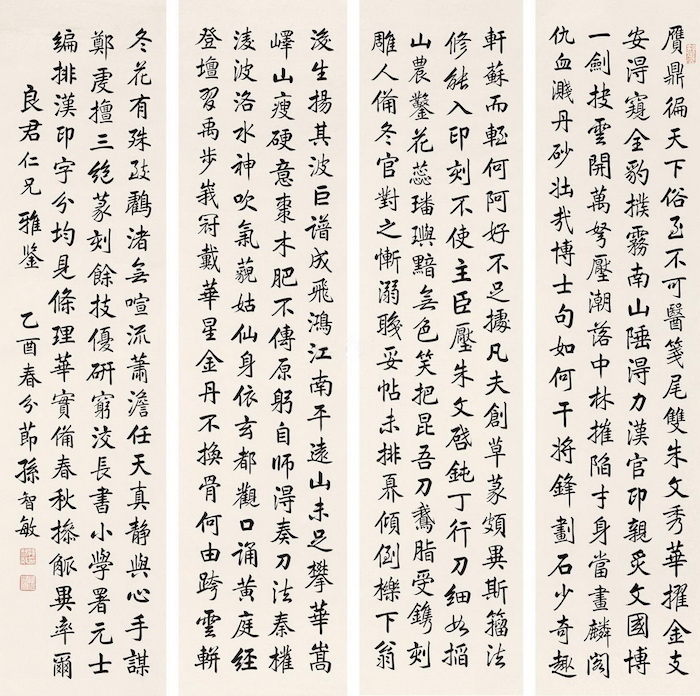 贗鼎徧天下俗亟不可醫箋尾雙朱文秀華擢金支
安得窺全豹撲霧南山陲得力漢官印親炙文國博
一劍技雲開萬弩壓潮落中林摧陷才身當畫麟閣
仇血濺丹砂壯哉博士句如何干將鋒劃石少奇趣
軒蘇而輊何阿好不足據凡夫創草篆頗異斯籀法
修能入印刻不使主臣壓朱文啓鈍丁行刀細如掐
山農鑿花蕊璠璵黯無色笑把昆吾刀鵞脂受鐫刻
雕人備冬官對之慚溺職妥帖未排奡傾倒櫟下翁
浚生揚其波巨譜成飛鴻江南平遠山未足攀華嵩
嶧山瘦硬意棗木肥不傳原躬自師得奏刀法秦權
淩波洛水神吹氣藐姑仙身依玄都觀口誦黃庭經
登壇習禹步峩冠戴華星金丹不換骨何由跨雲輧
冬花有殊致鸛渚無喧流蕭澹任天真靜與心手謀
鄭虔擅三絕篆刻餘技優研窮洨長書小學署元士
編排漢印字分均見條理華實備春秋摻觚異率爾
良君仁兄雅鑒 乙酉春分節孫智敏